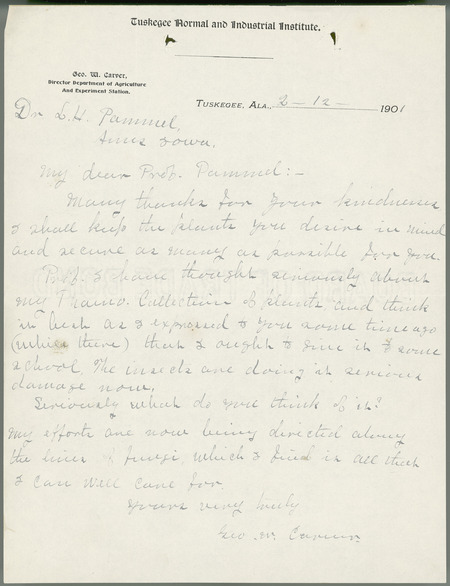 Tuskegee Normal and Industrial Institute.
Geo. W. Carver,
Director Department of Agriculture
And Experiment Station.
Tuskegee, Ala., 2-12- 1901
Dr L. H. Pammel,
Ames Iowa.
My dear Prof. Pammel:-
Many thanks for your kindness
I shall keep the plants you desire in mind
and secure as many as possible for you.
Prof. I have thought seriously about
my Phaino. Collection of plants and think
in as I expressed to you some time ago
(while there) that I ought to give it to some
school. The insects are doing it serious
damage now.
Seriously what do you think of it?
My efforts are now being directed along
the lines of fungi which I find is all that
I can well care for.
Yours very truly
Geo. W. Carver.